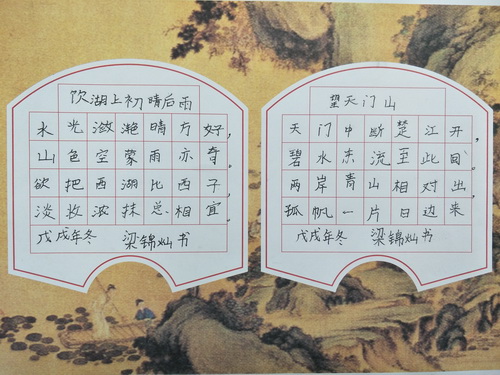 饮湖上初晴后雨
水光潋滟晴方好，
山色空蒙雨亦奇。
欲把西湖比西子，
淡妆浓抹总相宜。
戊戌年冬 梁锦灿书
望天门山
天门中断楚江开，
碧水东流至此回。
两岸青山相对出，
孤帆一片日边来
戊戌年冬 梁锦灿书